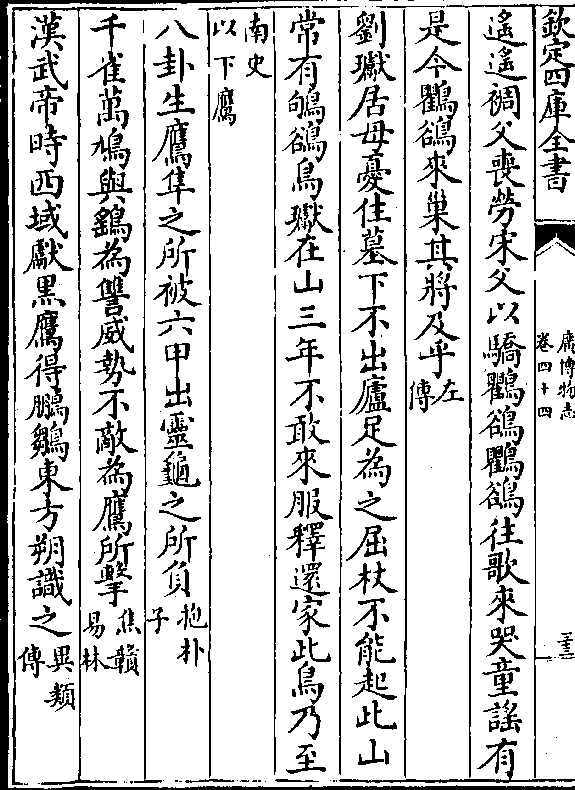 欽定四庫全書
廣博物志
卷四十四
遙遙裯父喪勞宋父以驕鸜鵒鸜鵒往歌來哭童謠有
是今鸜鵒來巢其將及乎左傳
劉瓛居母憂住墓下不出廬足為之屈杖不能起此山
常有鴝鵒鳥瓛在山三年不敢來服釋還家此鳥乃至
南史以下鷹
八卦生鷹隼之所被六甲出靈龜之所負抱朴子
千雀萬鳩與鷂為讐威勢不敵為鷹所擊焦贛易林
漢武帝時西域獻黑鷹得鵬鶵東方朔識之異類傳